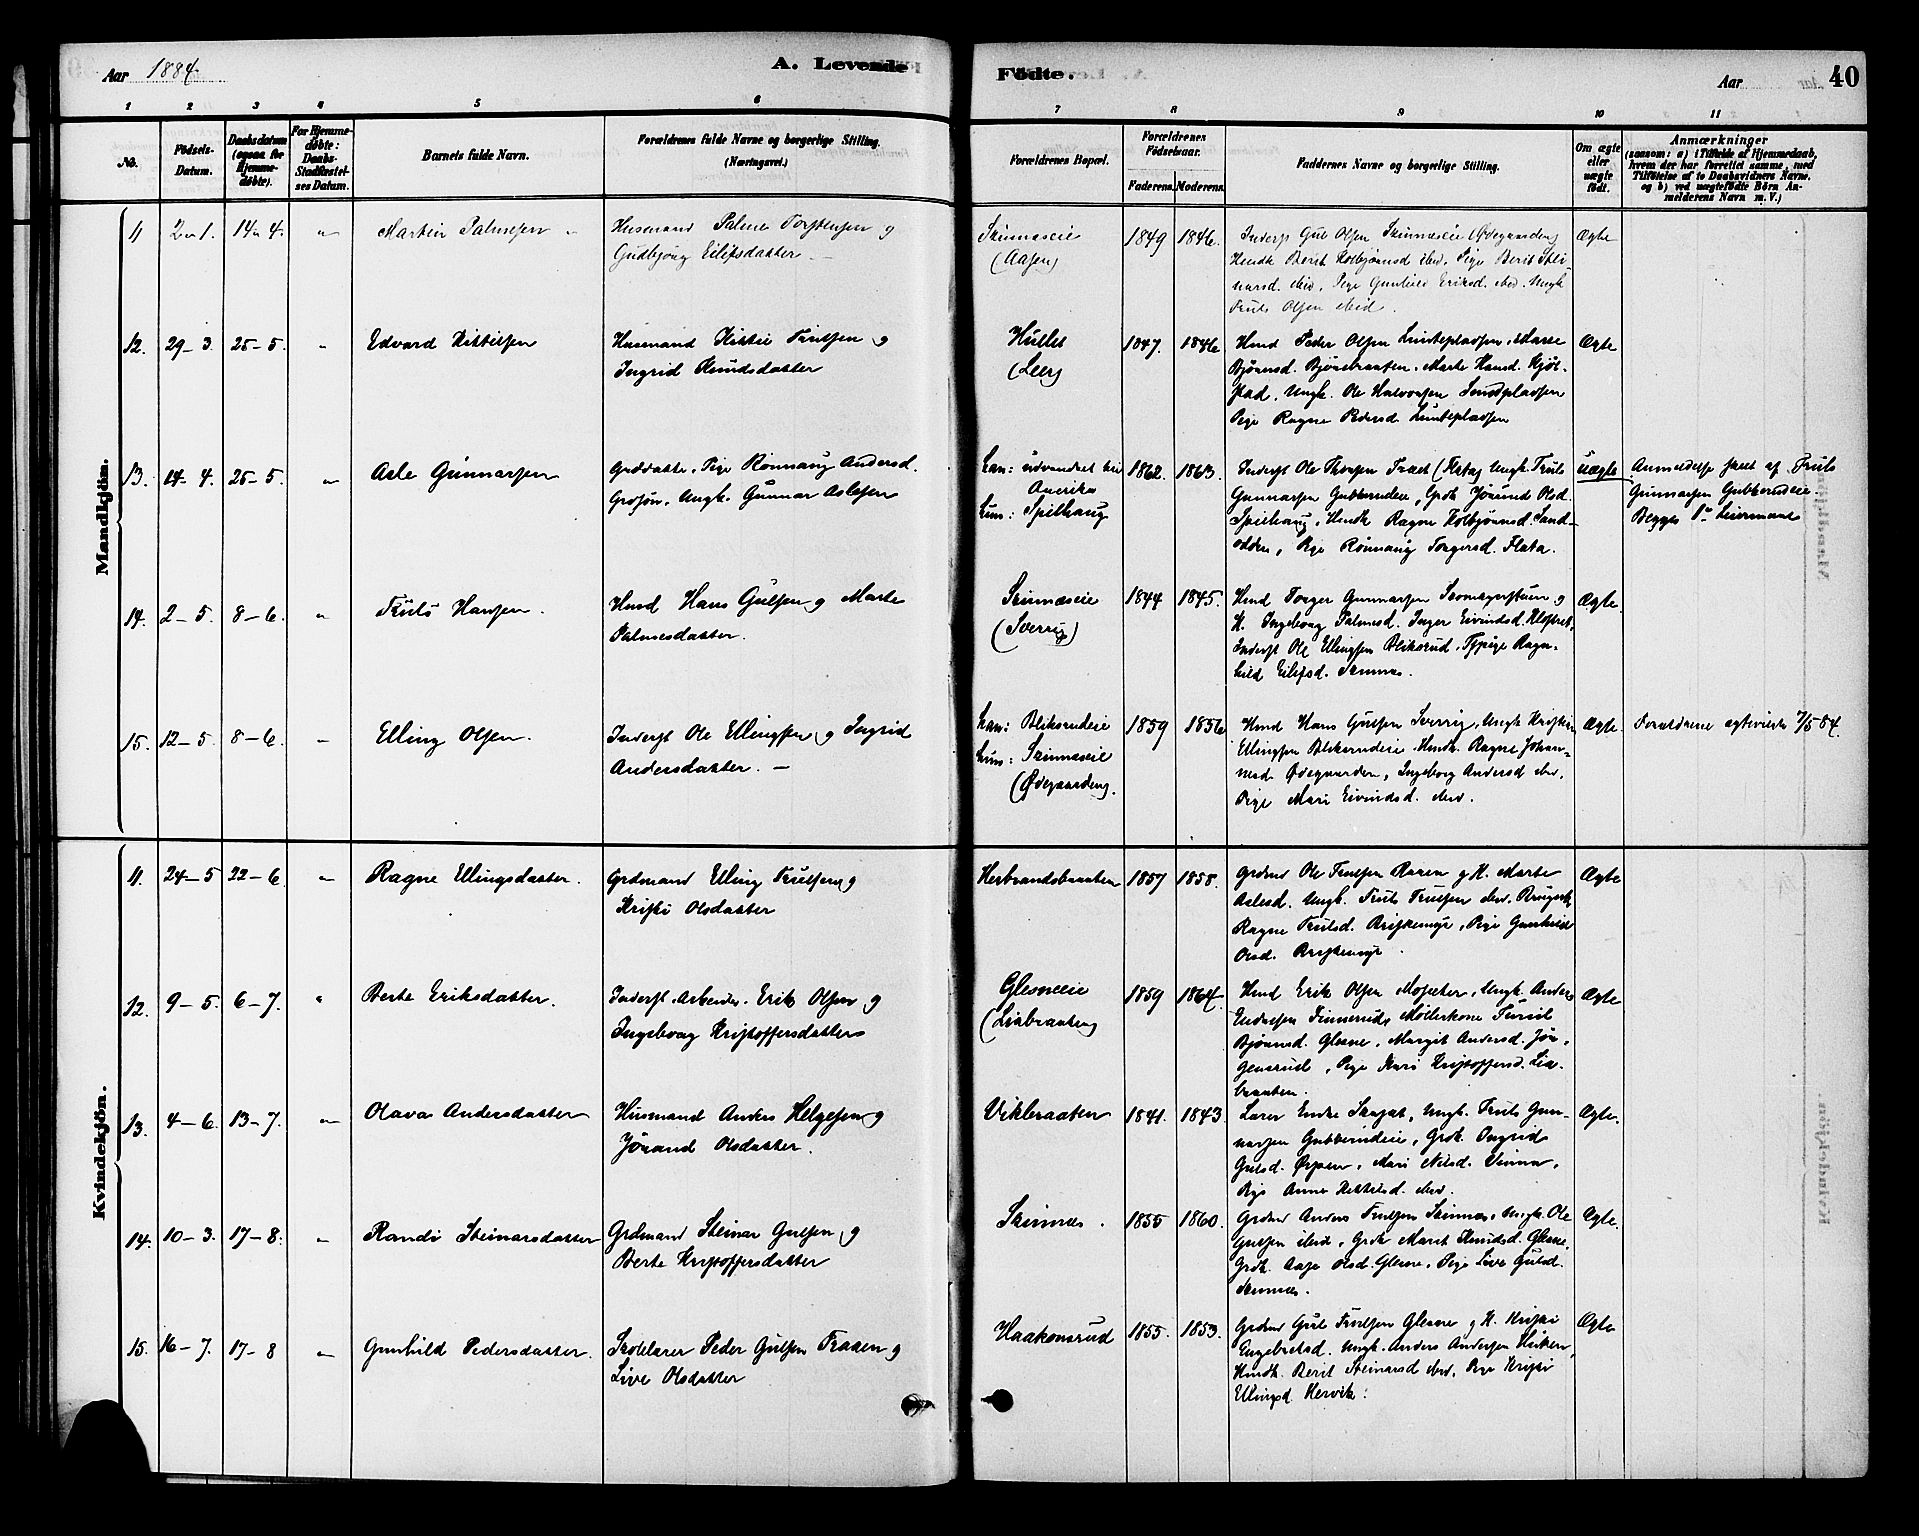 Aar 1884
A. Levende
Fødte.
Aar
40
1 2 3 4 5 6 7 8 9 10 11
No.
Fødsels-Datum.
Daabsdatum (ogsaa for Hjemmedøbte).
For Hjemmedøbte: Daabs-Stadfæstelses Datum.
Barnets fulde Navn.
Forældrenes fulde Navne og borgerlige Stilling. (Næringsvei.)
Forældrenes Bopæl.
Forældrenes Fødselsaar.
Faderens. Moderens.
Faddernes Navne og borgerlige Stilling.
Om ægte eller uægte født.
Anmærkninger
(saasom: a) i Tilfælde af Hjemmedaab, hvem der har forrettet samme, med Tilføielse af to Daabsvidners Navne, og b) ved uægtefødte Børn Anmelderens Navn m. V.)
Mandkjön.
11 2-1. 14-4. " Martin Palmesen
Husmand Palme Torstensen og
Gudbjørg Eilifsdatter.
Skinnæseie
(Aasen)
1849 1846.
Inderst Gul Olsen Skinnæseie (Ødegaarden)
Hmdk Berit Kolbjørnsd ibid. Pige Berit Steinarsd. ibid, Pige Gunhild Eriksd. ibid. Ungk
Truls Olsen ibid.
Ægte
12. 29-3. 25-5. " Edvard Kittilsen
Husmand Kittil Trulsen og
Ingrid Knudsdatter
(Leer)
1847. 1846
Hmd Peder Olsen Lundepladsen, Marte
Bjørnsd. Bjørnebraaten. Marte Hansd. Kjølstad, Ungk. Ole Halvorsen
Pige Ragne Pedersd. Lundepladsen
Ægte
13. 14-4. 25-5. " Asle Gunnarsen
Grddatter, Pige Rønnaug Andersd.
Grdsøn, Ungk. Gunnar Aslesen
han: udvandret til
Amerika
hun: Spilhaug
1862. 1863.
Inderst Ole Thorsen Træet Ungk. Truls
Gunnarsen Gubberudeie, Grdk Jørund Olsd.
Spilhaug, Hmdk Ragne Kolbjørnsd. Sandodden, Pige Rønnaug Torgersd. Flata.
Uægte
Anmeldelse skeet af Truls
Gunnarsen Gubberudeie.
Begges 1ste Leiermaal
14. 2-5. 8-6. " Truls Hansen.
Hmd Hans Gulsen og Marte
Palmesdatter.
Skinnæseie
(Sverrig)
1844 1845.
Hmd Torger Gunnarsen og
K. Ingeborg Palmesd. Inger Eivindsd.
Inderst Ole Ellingsen Bliksrud, Tjpige Ragnhild Eilifsd. Skinnes.
Ægte.
15. 12-5. 8-6. " Elling Olsen.
Inderst Ole Ellingsen og Ingrid
Andersdatter. —
han: Bliksrudeie
hun: Skinnæseie
(Ødegaarden).
1859 1856
Hmd Hans Gulsen Sverrig, Ungk Kristian
Ellingsen Bliksrudeie. Hmdk. Ragne Johannesd. Ødegaarden, Ingeborg Andersd ibid.
Pige Mari Eivindsd. ibid.
Ægte.
Forældrene ægteviede 7/5 84.
Kvindekjön.
11. 24-5 22-6. " Ragne Ellingsdatter.
Grdmand Elling Trulsen og
Kristi Olsdatter
Herbrandsbraaten
1857 1858.
Grdmd Ole Trulsen Raaen og K. Marte
Aslesd. Ungk. Truls Trulsen ibid.
Ragne Trulsd. Briskemyr, Pige Gunhild
Olsd. Briskemyr.
Ægte
12. 9-5. 6-7. " Berte Eriksdatter.
Inderst. Arbeider. Erik Olsen og
Ingeborg Kristoffersdatter
Glesneeie
(Liabraaten)
1859 1864.
Hmd Erik Olsen Moseter, Ungk. Anders
Møllerkone Turid
Bjørnsd. Glesne, Margit Andersd. Jørgensrud, Pige Kari Kristoffersd. Liabraaten.
Ægte
13. 4-6. 13-7. " Olava Andersdatter
Husmand Anders Helgesen og
Jørand Olsdatter.
Vikbraaten
1841. 1843.
Lærer Endre Ungk. Truls Gunnarsen Gubberudeie, Grdk. Ingrid
Gulsd. Ørpen, Mari Nilsd.
Pige Anne Kittilsd. ibid.
Ægte.
14. 10-3. 17-8. " Randi Steinarsdatter
Grdmand Steinar Gulsen og
Berte Kristoffersdatter
Skinnæs.
1855 1860.
Grdmd Anders Trulsen Skinnæs, Ungk. Ole
Gulsen ibid, Grdk Marit Knudsd. Glesne,
Grdk. Aase Olsd. Glesne, Pige Live Gulsd.
Skinnæs.
Ægte.
15. 16-7. 17-8 " Gunhild Pedersdatter.
Skolelærer Peder Gulsen Traaen og
Live Olsdatter
Haakonsrud
1855. 1853.
Grdmd Gul Trulsen Glesne og K. Kristi
Engebretsd. Ungk. Anders Andersen
Hmdk. Berit Steinarsd ibid, Pige Kristi
Ellingsd. Hervik.
Ægte